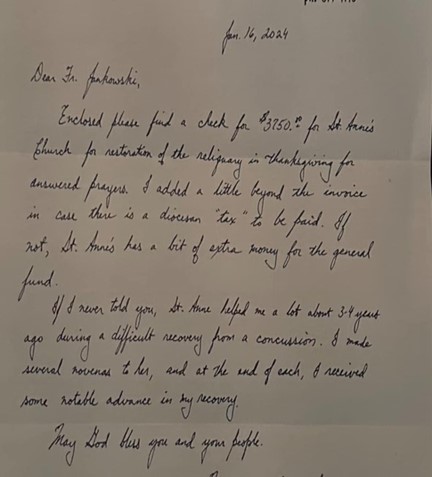 Jan. 16, 2024
Dear Fr. Jankowski,
Enclosed please find a check for $3750.00 for St. Anne's
Church for restoration of the reliquary in thanksgiving for
answered prayers. I added a little beyond the invoice
in case there is a diocesan "tax" to be paid. If
not, St. Anne's has a bit of extra money for the general
fund.
If I never told you, St. Anne helped me a lot about 3-4 years
ago during a difficult recovery from a concussion. I made
several novenas to her, and at the end of each, I received
some notable advance in my recovery.
May God bless you and your people.